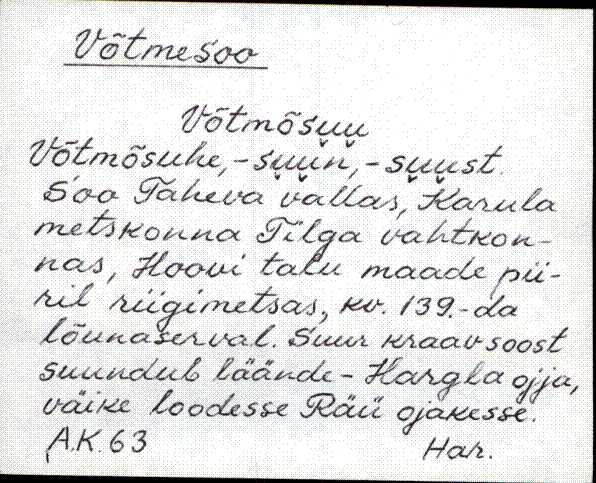 Võtmesoo
Võtmõsu̬u̬
Võtmõsuhe, -su̬u̬n, -su̬u̬st.
Soo Taheva vallas, Karula
metskonna Tilga vahtkon-
nas, Hoovi talu maade pii-
ril riigimetsas, kv. 139.-da
lõunaserval. Suur kraav soost
suundub läände - Hargla ojja,
väike loodesse Räü ojakesse.
A.K. 63 Har.